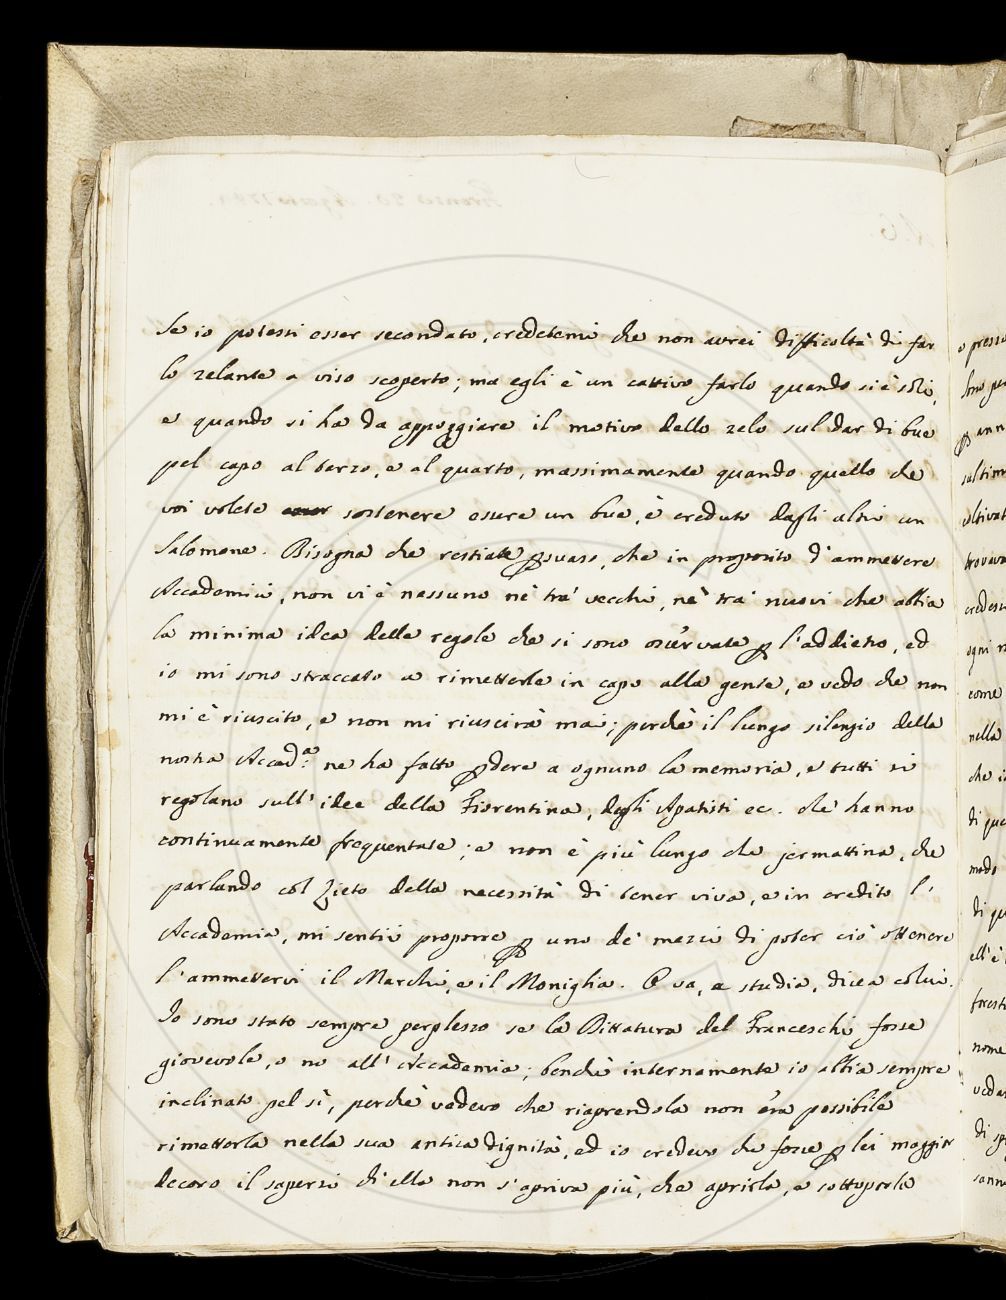 Se io potessi esser secondato, credetemi che non avrei difficoltà di far
lo zelante a viso scoperto; ma egli è un cattivo farlo quando si è soli,
e quando si ha da appoggiare il motivo dello zelo sul dar di bue
pel capo al terzo, e al quarto, massimamente quando quello che
voi volete sostenere essere un bue, è creduto dagli altri un
Salomone. Bisogna che restiate psuaso, che in proposito d'ammettere
Accademici, non vi è nessuno nè trà vecchi, nè trà nuovi che abbia
la minima idea delle regole che si sono osservate p l'addietro, ed
io mi sono straccato a rimetterle in capo alla gente, e vedo che non
mi è riuscito, e non mi riuscirà mai; perchè il lungo silenzio della
nostra Accad.a ne ha fatto pdere a ognuno la memoria, e tutti si
regolano sull'idee della Fiorentina, degli Apatisti ec. che hanno
continuamente frequentate; e non è più lungo che jermattina, che
parlando col Zieto della necessità di tener viva, e in credito l'
Accademia, mi sentii proporre p uno de' mezzi di poter ciò ottenere
l'ammettervi il Marchi, e il Moniglia. O va, a studia, dicea colui.
Io sono stato sempre perplesso se la Dittatura del Franceschi fosse
giovevole, o no all'Accademia; benchè internamente io abbia sempre
inclinato pel sì, perchè vedevo che riaprendola non era possibile
rimetterla nella sua antica dignità, ed io credevo che fosse p lei maggior
decoro il sapersi ch'ella non s'apriva più, che aprirla, e sottoporla